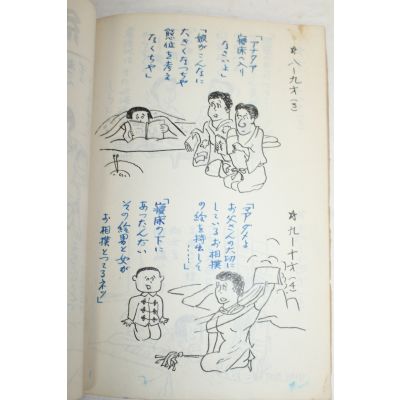 八ー九才(き)
「アナタア
寝床へ入り
なさいよ」
「娘がこんなに
大きくなっちゃ
態位を考え
なくちゃ
九ー十才(き)
「マアダイよ
お父さんの大切に
しているお相撲
の絵を持出して
……」
「寝床の下に
あったんだい
その絵男と女が
お相撲とってるネッ」